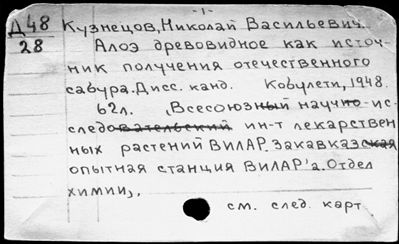 -1-
Д48 Кузнецов, Николай Васильевич.
28 Алоэ древовидное как источ-
ник получения отечественного
сабура. Дисс. канд. Кобулети, 1948.
62л. Всесоюзный научно-ис-
следовательский ин-т лекарствен
ных растений ВИЛАР. Закавказская
опытная станция ВИЛАР'а. Отдел
химии,.
см. след. карт